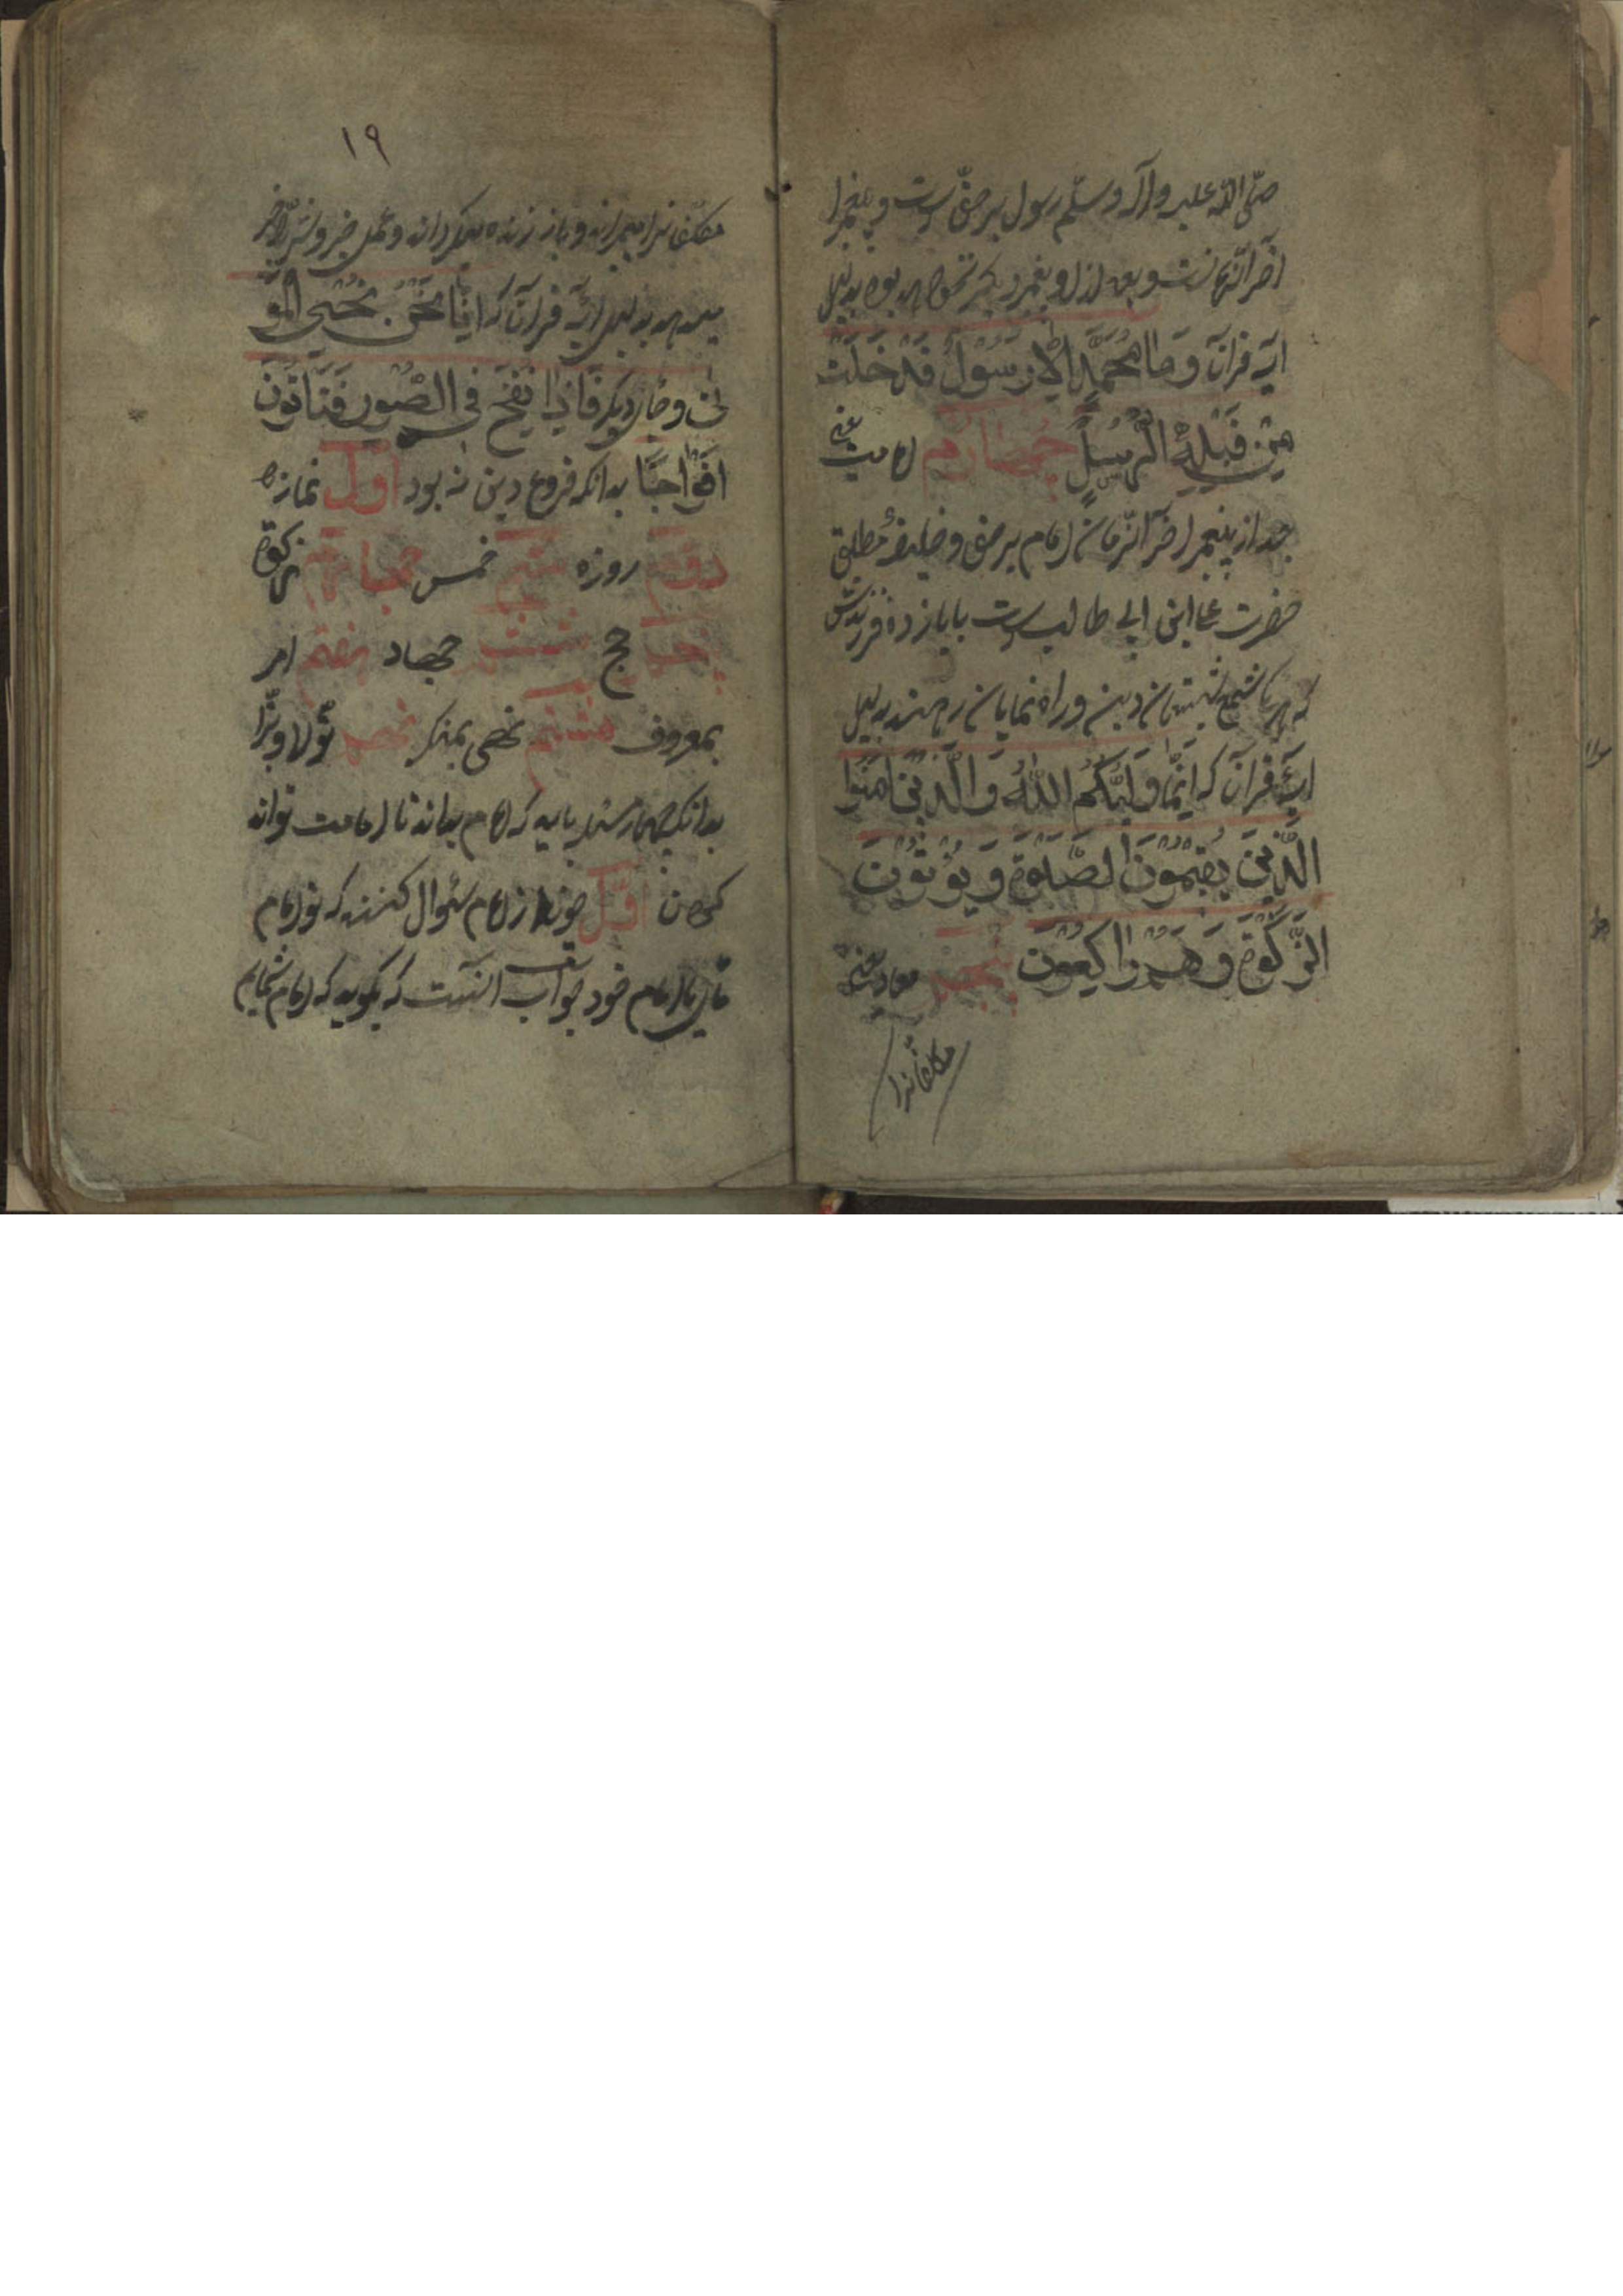 صلّی الله علیه وآله وسلّم رسول برحقّ است و پیغمبر
آخر الزّمانست و بعد از او پیغمبر دیگر نخواهد بود بدلیل
آیه قرآن وَمَا مُحَمَّدٌ اِلّا رَسُولٌ قَدْ خَلَتْ
مِنْ قَبْلِهِ الرُّسُلُ چهارم امامت یعنی
بعد از پیغمبر آخر الزّمان امام برحق و خلیفهٔ مطلق
حضرت علی ابن ابی طالب است با یازده فرزندش
که هر یک شمع شبستان دین و راه نمایان رهند بدلیل
آیهٔ قرآن که اِنَّمَا وَلِیُّکُمُ اللهُ وَالَّذینَ اٰمَنُوا
الَّذینَ یُقیمُونَ الصَّلٰوةَ وَیُؤتُونَ
الزَّکٰوةَ وَهُمْ رٰاکِعُونَ پنجم معاد یعنی
مکلفانرا
۱۹
مکلّفانرا میمیراند و باز زنده میگرداند و عمل خیر و شر
میدهد بدلیل آیه قرآن که اِنّا نَحْنُ نُحْیِی الْمَوْ
تٰی و جای دیگر فَاِذا نُفِخَ فِی الصُّورِ فَتَأتُونَ
اَفْوٰاجًا بدانکه فروع دین نه بود اوّل نماز
دوّم روزه سیّم خمس چهارم زکوة
پنجم حج ششم جهاد هفتم امر
بمعروف هشتم نهی بمنکر نهم تولّا و تبرّا
بدانکه چهار مسئله باید که امام بداند تا امامت تواند
کردن اوّل چون از امام سئوال کنند که تو امام
مائی یا امام خود جواب آنست که بگوید که امام شمایم